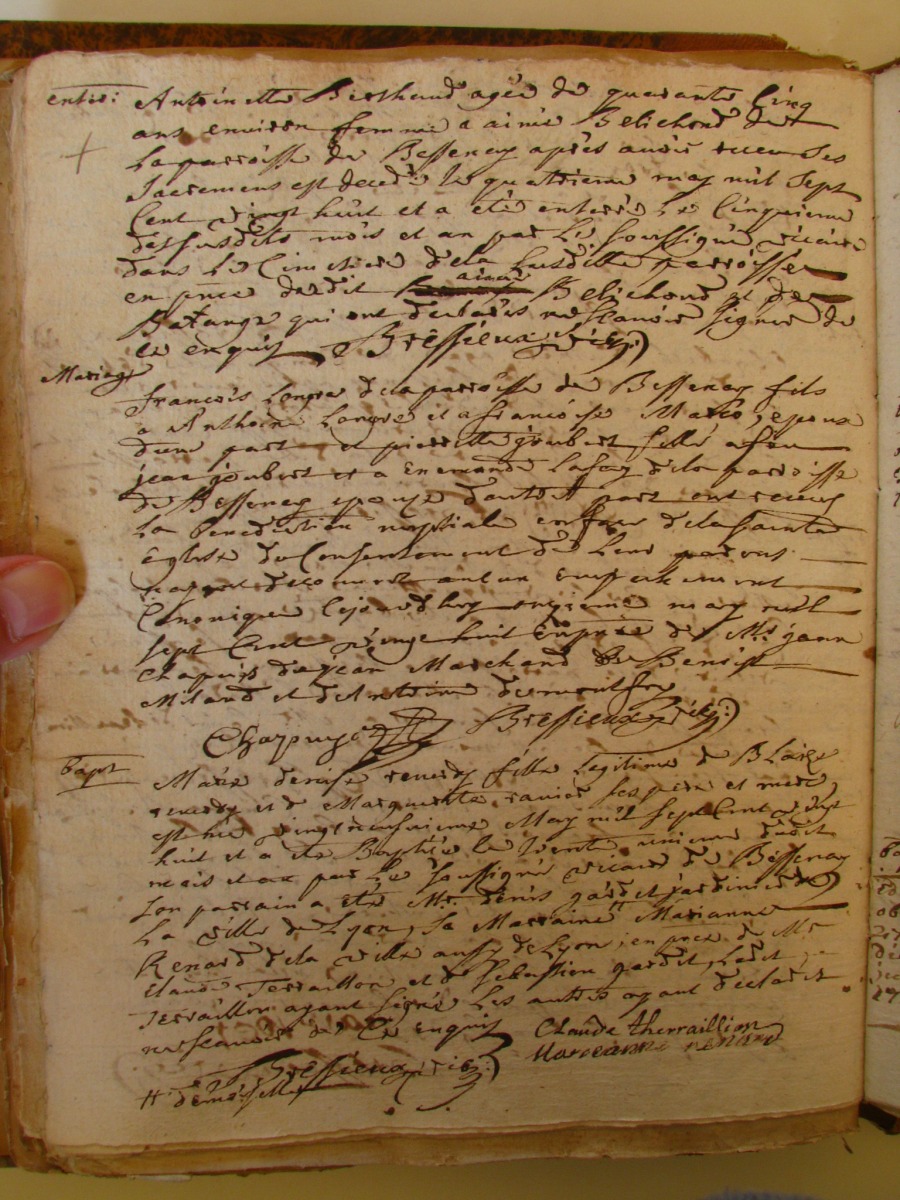 enter: Antoinette Berthaud agée de quarante Cinq
ans environ femme a aimé Belichond de
La parroisse de Bessenay aprés avoir receu Ses
Sacremens est decedé le quattrieme may mil Sept
Cent vingt huit et a été enterré Le Cinquieme
desusdits mois et an par Le Soussigné vicaire
dans Le Cimetiere de la susditte parroisse
en pnce dudit aimé Belichond et de
qui ont declarés ne scavoir signer de
ce enquis Bressieux vic:
Mariage
francois Longre de la parroisse de Bessenay fils
a Anthoine Longre et a francoise Marie, epoux
dune part et pierrette joubert fille a feu
jean joubert et a enemonde Lafay de la parroisse
de Bessenay epouse dautre part ont receus
La benediction nuptiale en face de la sainte
Eglise du Consentement de Leur parens
decouvert aucun empechement
Canonique Cejourdhuy onzieme may mil
sept Cent vingt huit En pnce de Mr jean
Chapuis Marchand de Benoist
Miland et dAntoine
Chapuys Bressieux vic:
bapt
Marie denise renerdy fille Legitime de BLaise
renerdy et de Marguerite ranier ses pere et mere
est nee vingtneufvieme May mil Sept Cent vingt
huit et a ete Baptisée le trente unieme dudit
mois et an par Le Soussigné vicaire de Bessenay
Son parrain a eté Mr denis gardet jardinier de
La ville de Lyon, Sa Marraine # Marianne
Renard de la ville aussy de Lyon, en pnce de Mr
claude Terraillon et de Sebastien gardet, Ledit
Terraillon ayant signé Les autres ayant declaré
ne scavoir de Ce enquis
Claude therraillion
Mareanne renard
Bressieux vic:
# demoiselle